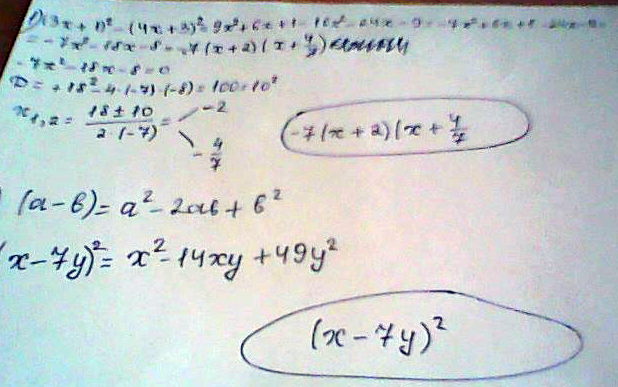 1) (3x + 1)² - (4x + 3)² = 9x² + 6x + 1 - 16x² - 24x - 9 = -7x² + 6x + 1 - 24x - 9 =
= -7x² - 18x - 8 = -7(x + 2)(x + 4/7)
-7x² - 18x - 8 = 0
D = +18² - 4·(-7)·(-8) = 100 = 10²
x₁,₂ = (18 ± 10)/(2·(-7)) = -2
- 4/7
-7(x + 2)(x + 4/7
(a - b) = a² - 2ab + b²
(x - 7y)² = x² - 14xy + 49y²
(x - 7y)²